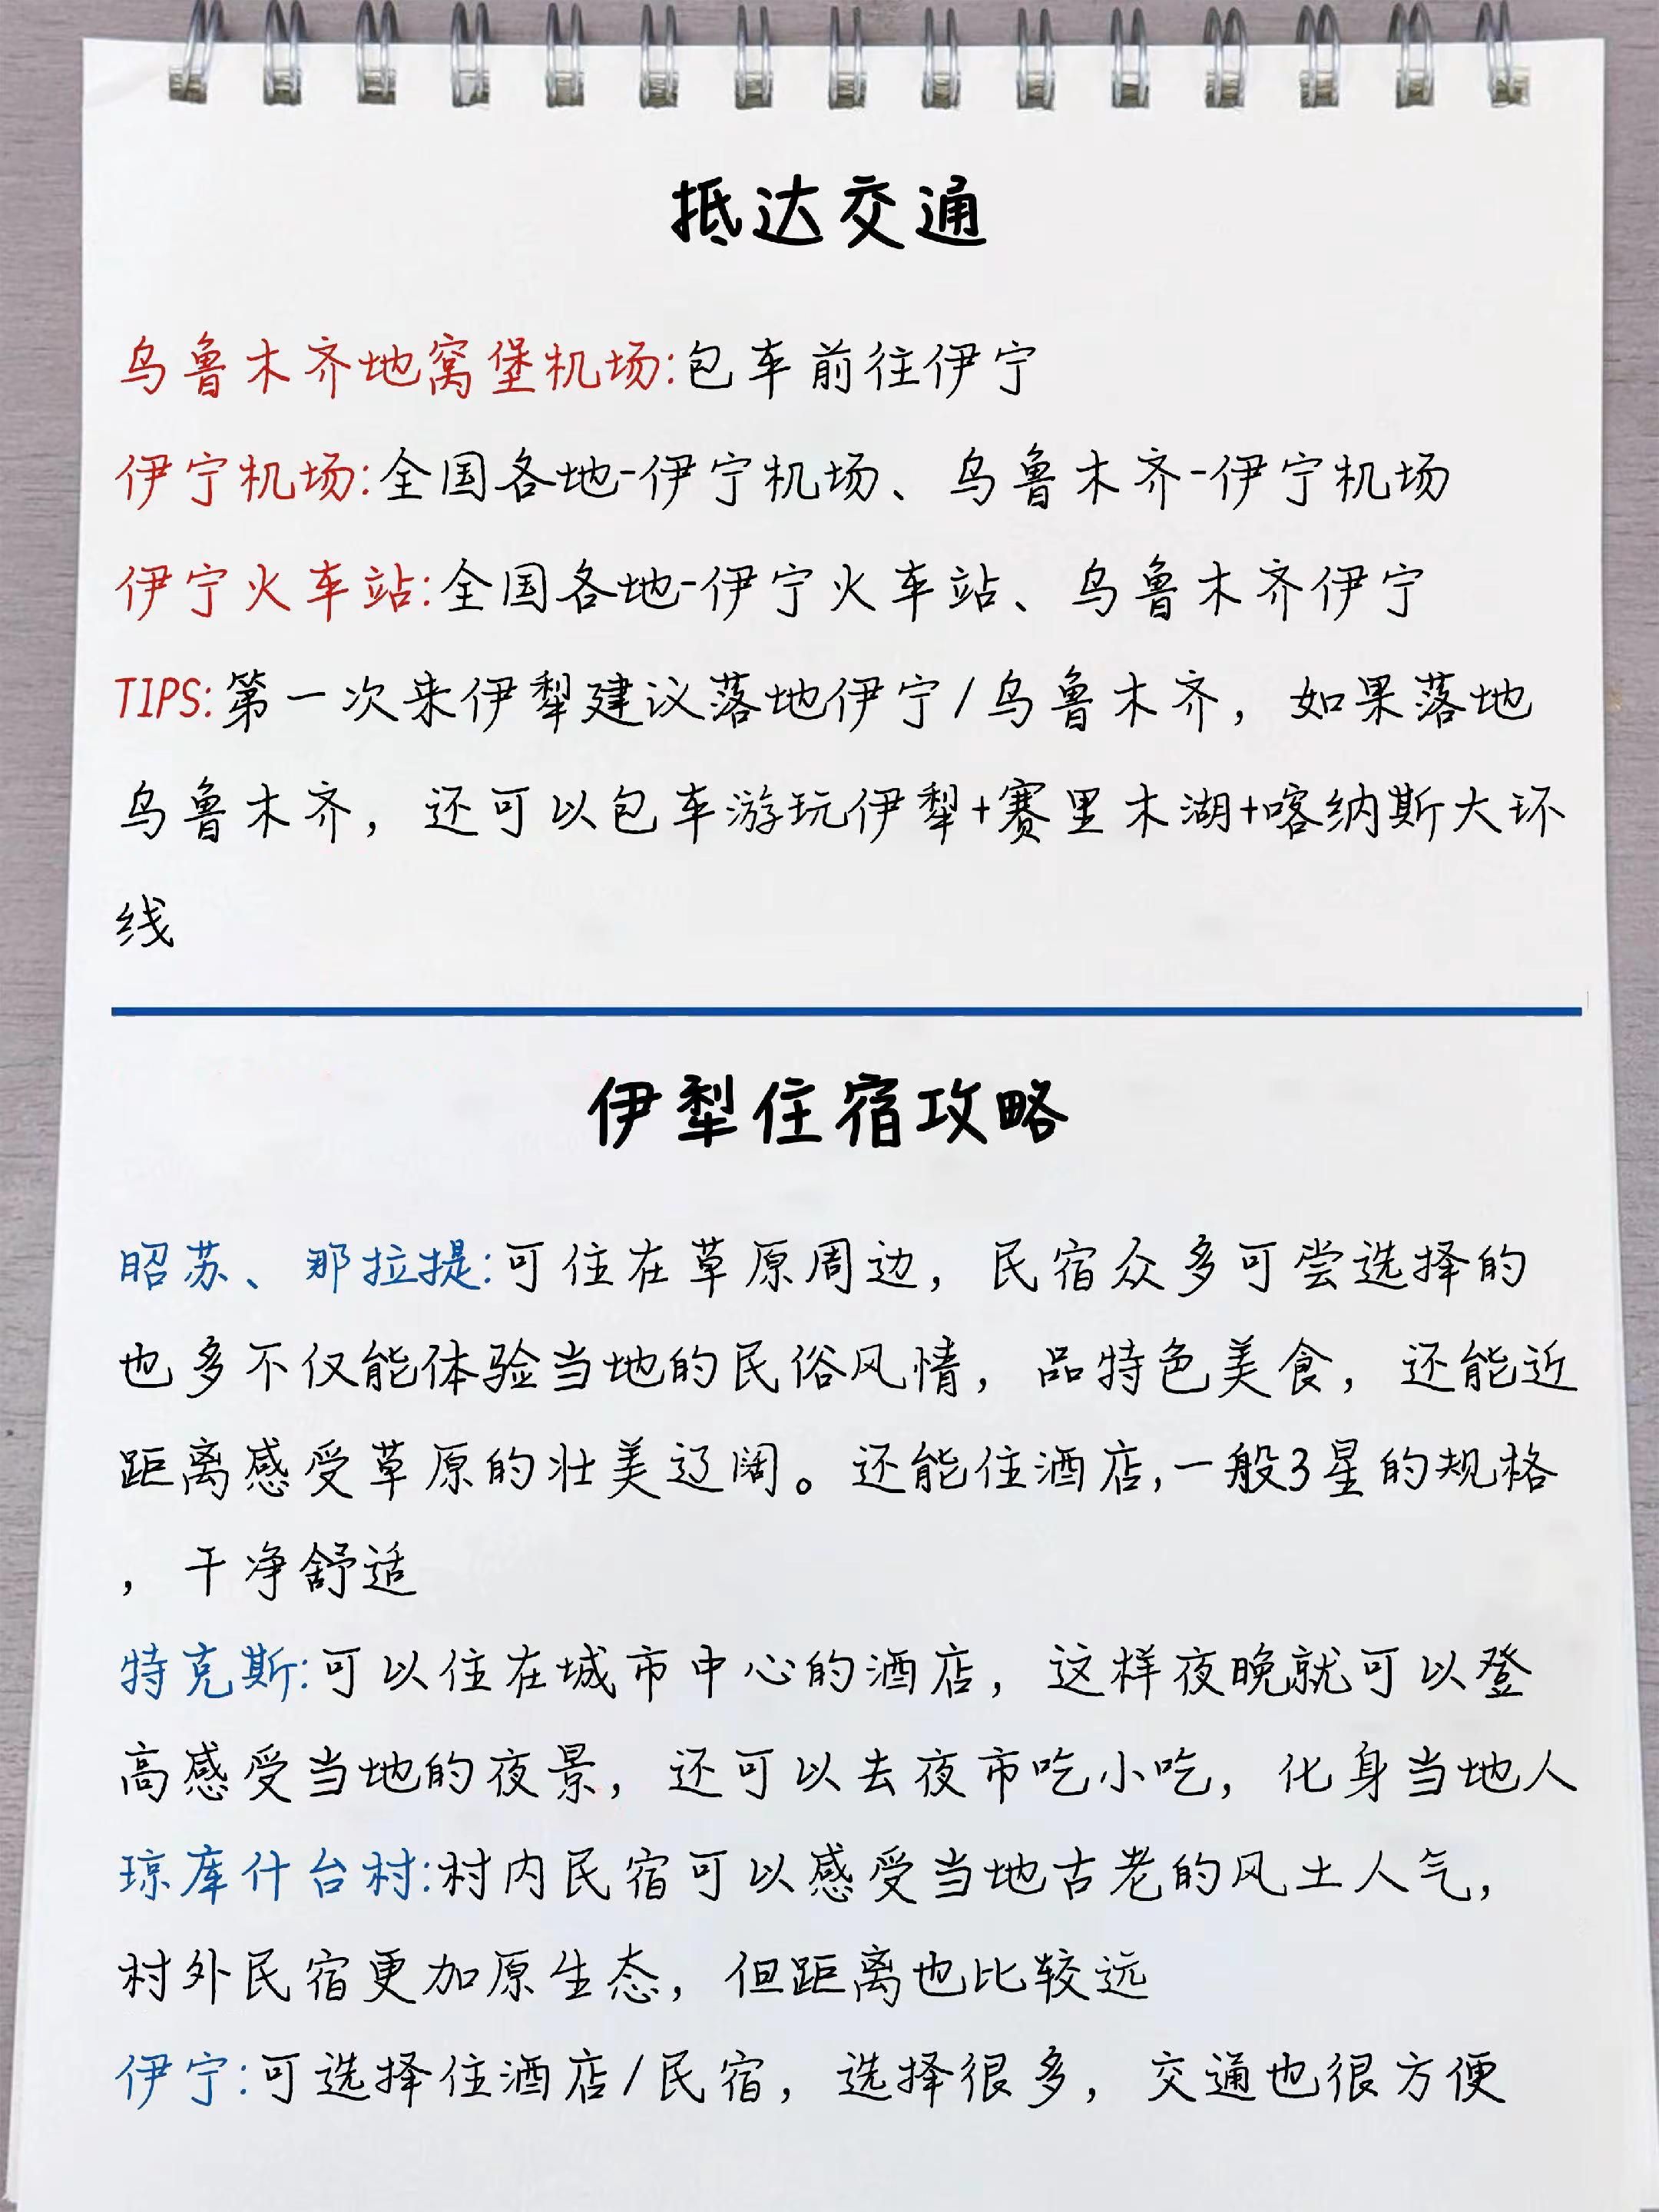 抵达交通
乌鲁木齐地窝堡机场:包车前往伊宁
伊宁机场:全国各地-伊宁机场、乌鲁木齐-伊宁机场
伊宁火车站:全国各地-伊宁火车站、乌鲁木齐伊宁
TIPS:第一次来伊犁建议落地伊宁/乌鲁木齐，如果落地
乌鲁木齐，还可以包车游玩伊犁+赛里木湖+喀纳斯大环
线
伊犁住宿攻略
昭苏、那拉提:可住在草原周边，民宿众多可尝选择的
也多不仅能体验当地的民俗风情，品特色美食，还能近
距离感受草原的壮美辽阔。还能住酒店,一般3星的规格
，干净舒适
特克斯:可以住在城市中心的酒店，这样夜晚就可以登
高感受当地的夜景，还可以去夜市吃小吃，化身当地人
琼库什台村:村内民宿可以感受当地古老的风土人气，
村外民宿更加原生态，但距离也比较远
伊宁:可选择住酒店/民宿，选择很多，交通也很方便